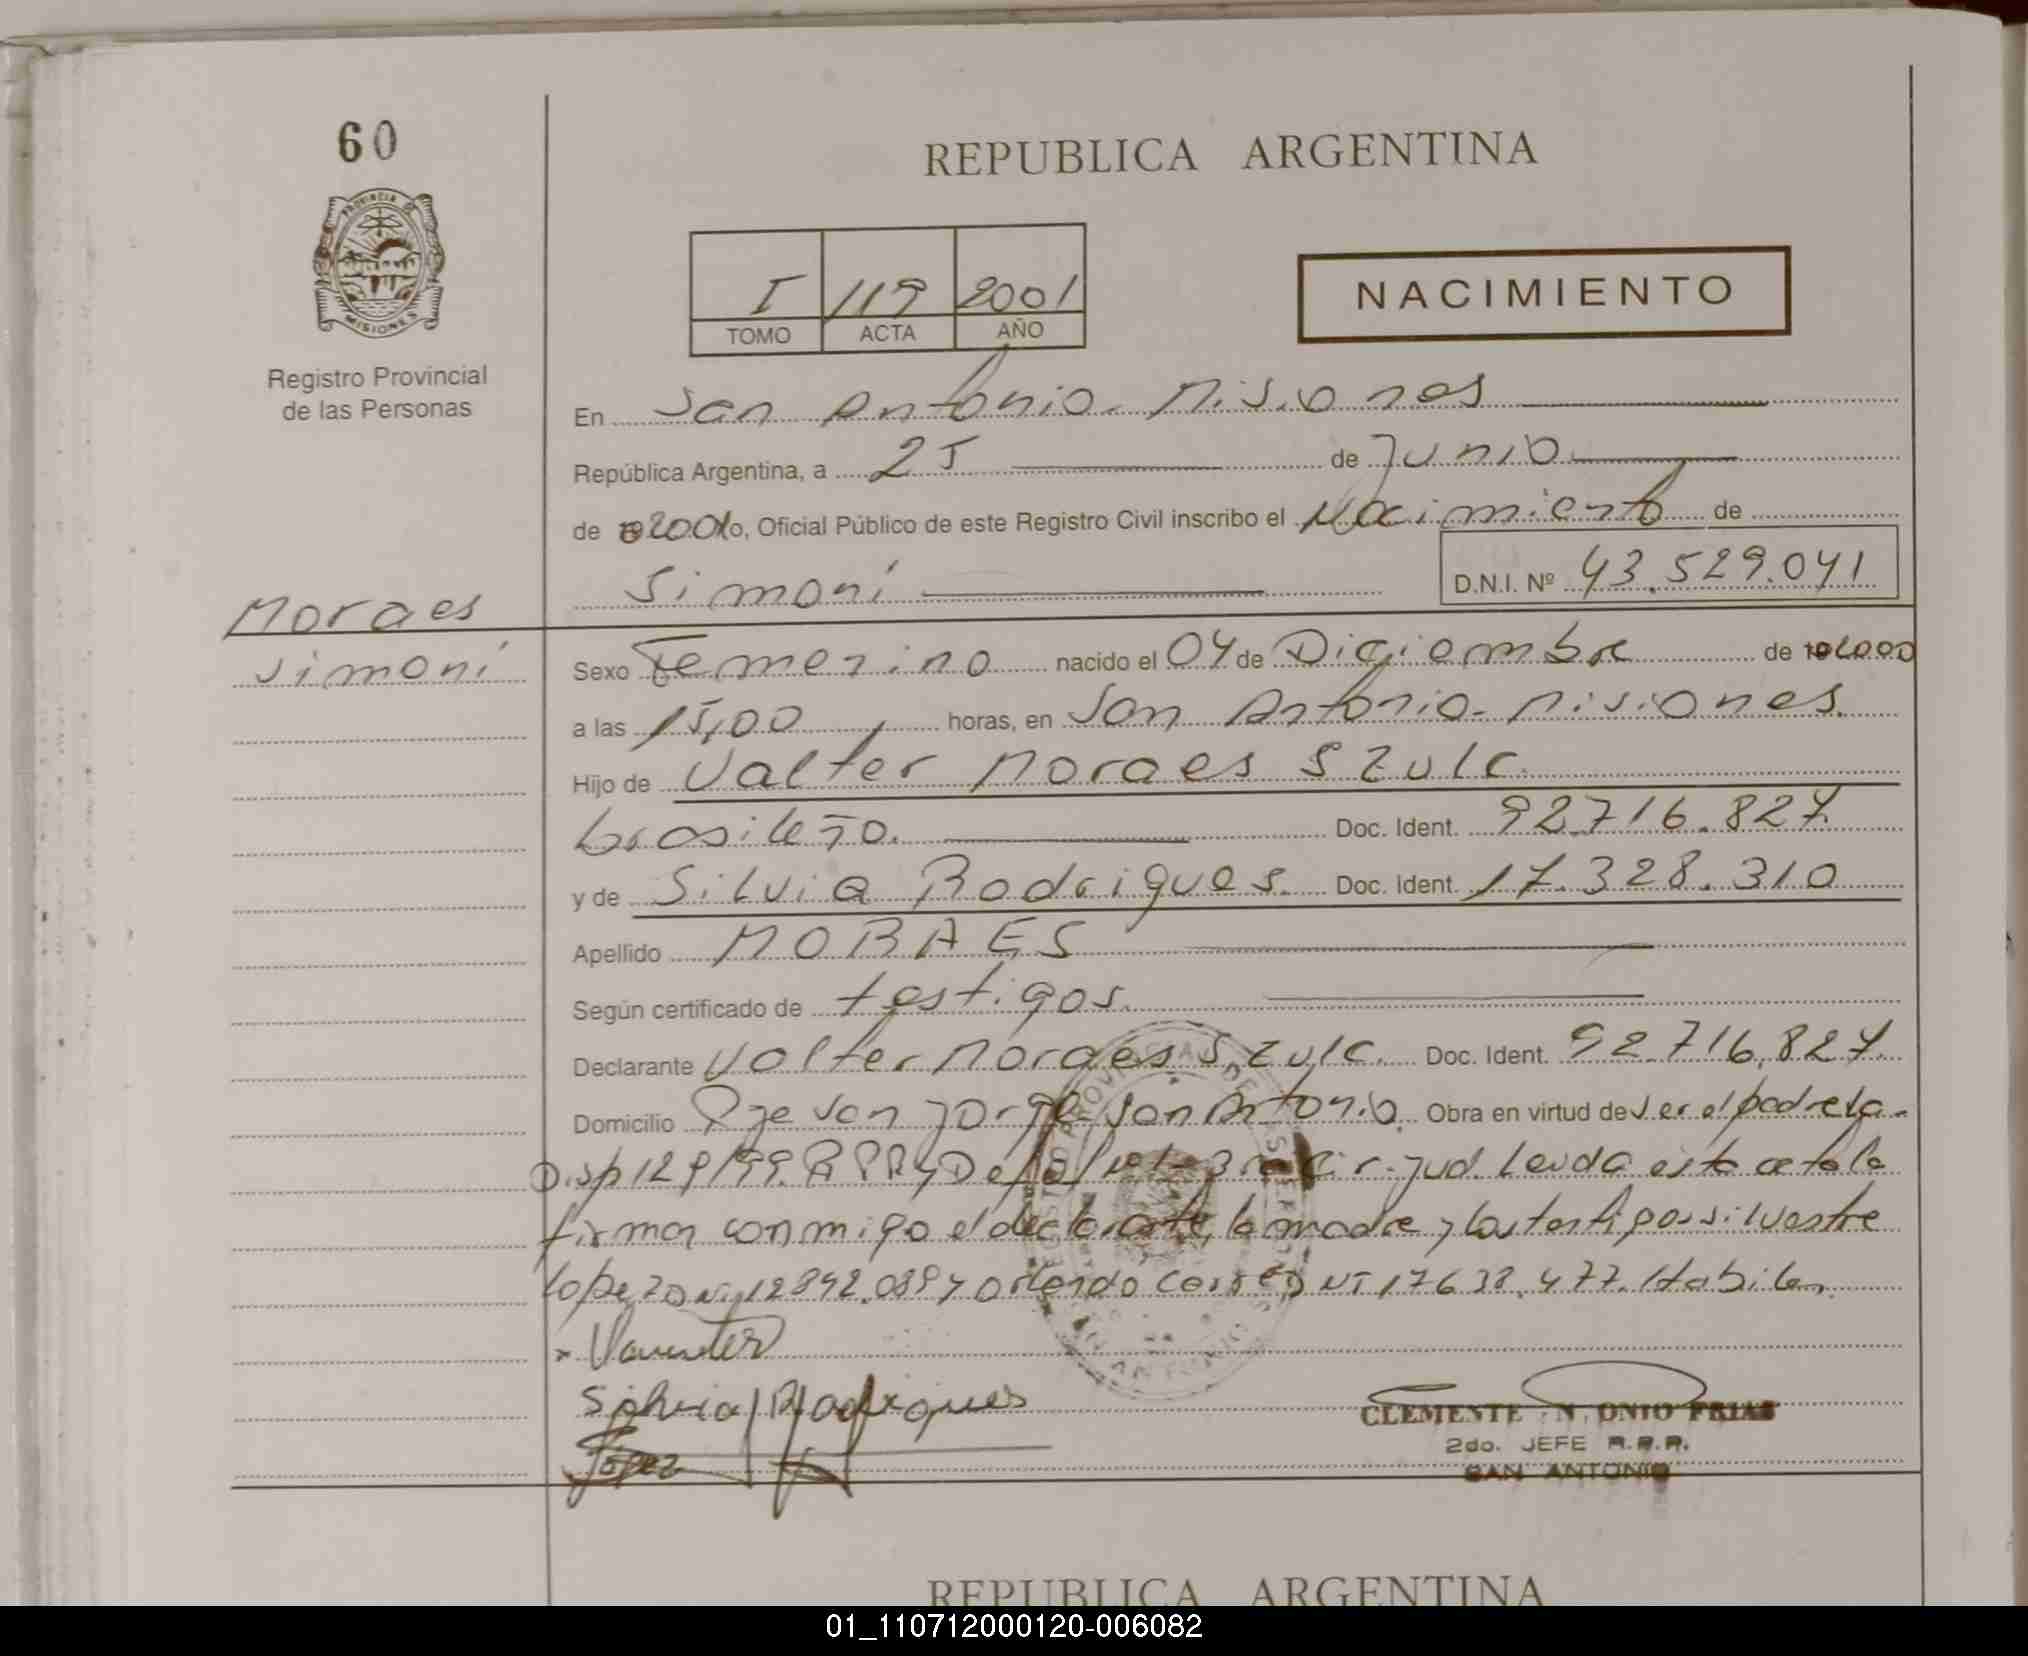 60
REPUBLICA ARGENTINA
PROVINCIA DE
MISIONES
I 119 2001
TOMO ACTA AÑO
NACIMIENTO
Registro Provincial
de las Personas
En San Antonio. Misiones
República Argentina, a 25 de Junio
de 2001 Yo, Oficial Público de este Registro Civil inscribo el Nacimiento de
Simoní D.N.I. Nº 43.529.041
Moraes
Simoní
Sexo Femenino nacido el 04 de Diciembre de 2000
a las 15,00 horas, en San Antonio. Misiones.
Hijo de Valter Moraes Szulc.
brasileño. Doc. Ident. 92.716.827.
y de Silvia Rodrigues. Doc. Ident. 17.328.310
Apellido MORAES
Según certificado de testigos.
Declarante Valter Moraes Szulc. Doc. Ident. 92.716.827.
Domicilio Pje San Jorge San Antonio. Obra en virtud de ser el padre la
Disp 129/99. jud. Leida esta acta la
firman conmigo el declarante, la madre y los testigos Silvestre
Lopez DNI 12892.089 y Orlando DNI 17638.477. Habiles.
Silvia Rodrigues
Lopez
CLEMENTE ANTONIO FRIAS
2do. JEFE R.P.P.
SAN ANTONIO
REPUBLICA ARGENTINA
01_110712000120-006082